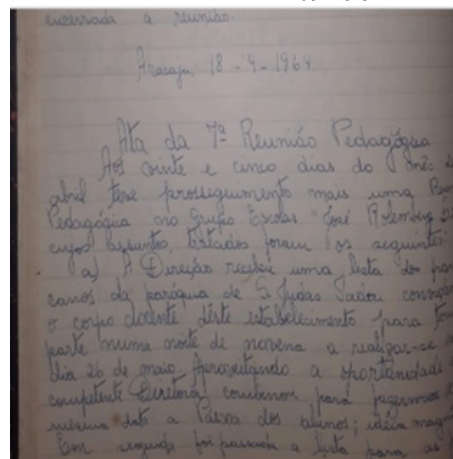 encerrada a reunião.
Aracaju, 18-4-1964.
Ata da 7ª Reunião Pedagógica
Aos vinte e cinco dias do mês
abril teve prosseguimento mais uma
Pedagógica no Grupo Escolar "José Rolemberg
cujos assuntos tratados foram os seguintes:
a) A Direção recebeu uma lista dos
da paróquia de S. Judas Tadeu
o corpo docente deste estabelecimento para
parte numa noite de novena a realizar-se
dia 26 de maio. Aproveitando a oportunidade
competente Diretora, combinou para fazermos
mesma data a Páscoa dos alunos; ideia
Em seguida foi passada a lista para as